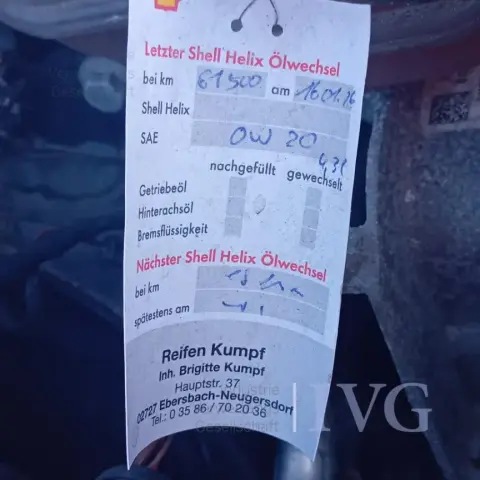 Letzter Shell Helix Ölwechsel
bei km 61500 am 16.01.26
Shell Helix
SAE 0W 20
4,3l
nachgefüllt gewechselt
Getriebeöl
Hinterachsöl
Bremsflüssigkeit
Nächster Shell Helix Ölwechsel
bei km
spätestens am
Reifen Kumpf
Inh. Brigitte Kumpf
Hauptstr. 37
02727 Ebersbach-Neugersdorf
Tel.: 0 35 86 / 70 20 36
Gesellschaft
IVG